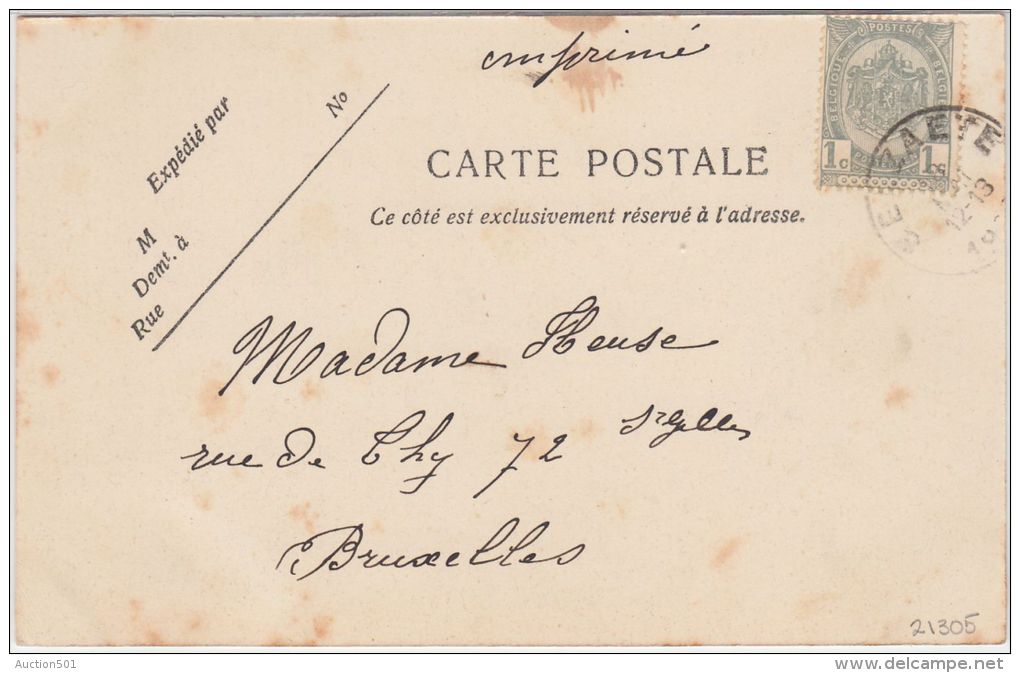 imprimé
POSTES
BELGIQUE
BELGIE
1c 1c
12-13
Expédié par
No
M
Demt. à
Rue
CARTE POSTALE
Ce côté est exclusivement réservé à l'adresse.
Madame Heuse
rue de Thy 72 St Gilles
Bruxelles
21305
Auction501
delcampe.net